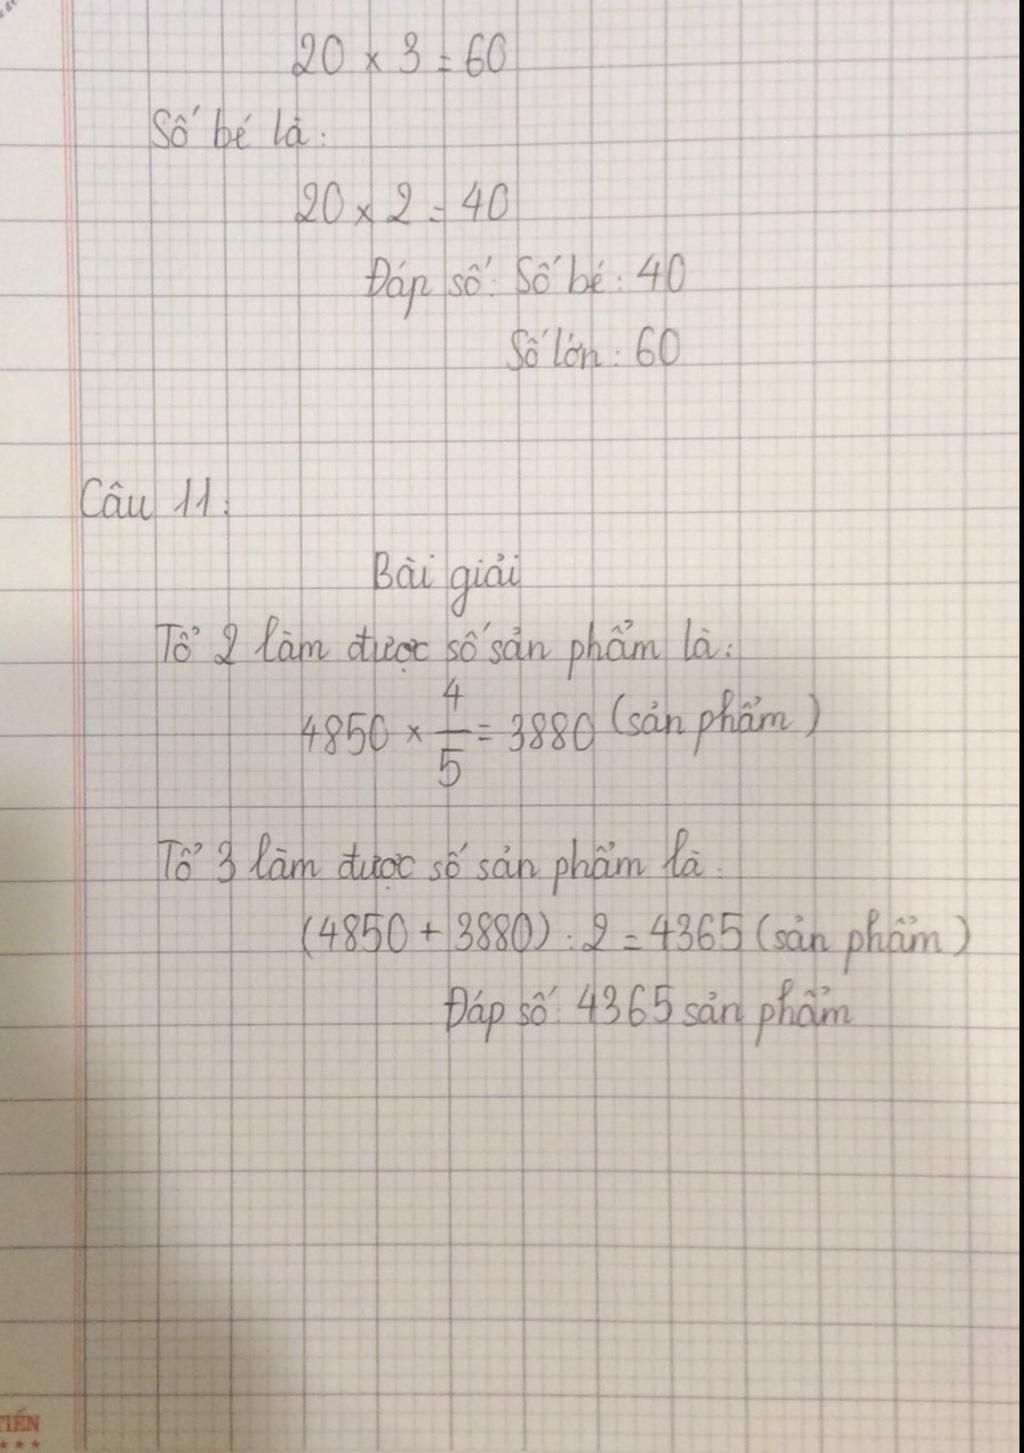 20 × 3 = 60
Số bé là:
20 × 2 = 40
Đáp số: Số bé: 40
Số lớn: 60
Câu 11:
Bài giải
Tổ 2 làm được số sản phẩm là:
4850 × 4/5 = 3880 (sản phẩm)
Tổ 3 làm được số sản phẩm là:
(4850 + 3880) : 2 = 4365 (sản phẩm)
Đáp số: 4365 sản phẩm
TIẾN